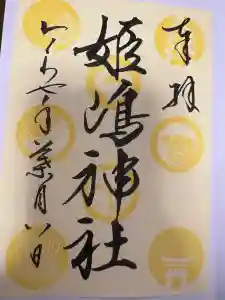 奉拝
姫嶋神社
令和七年葉月八日